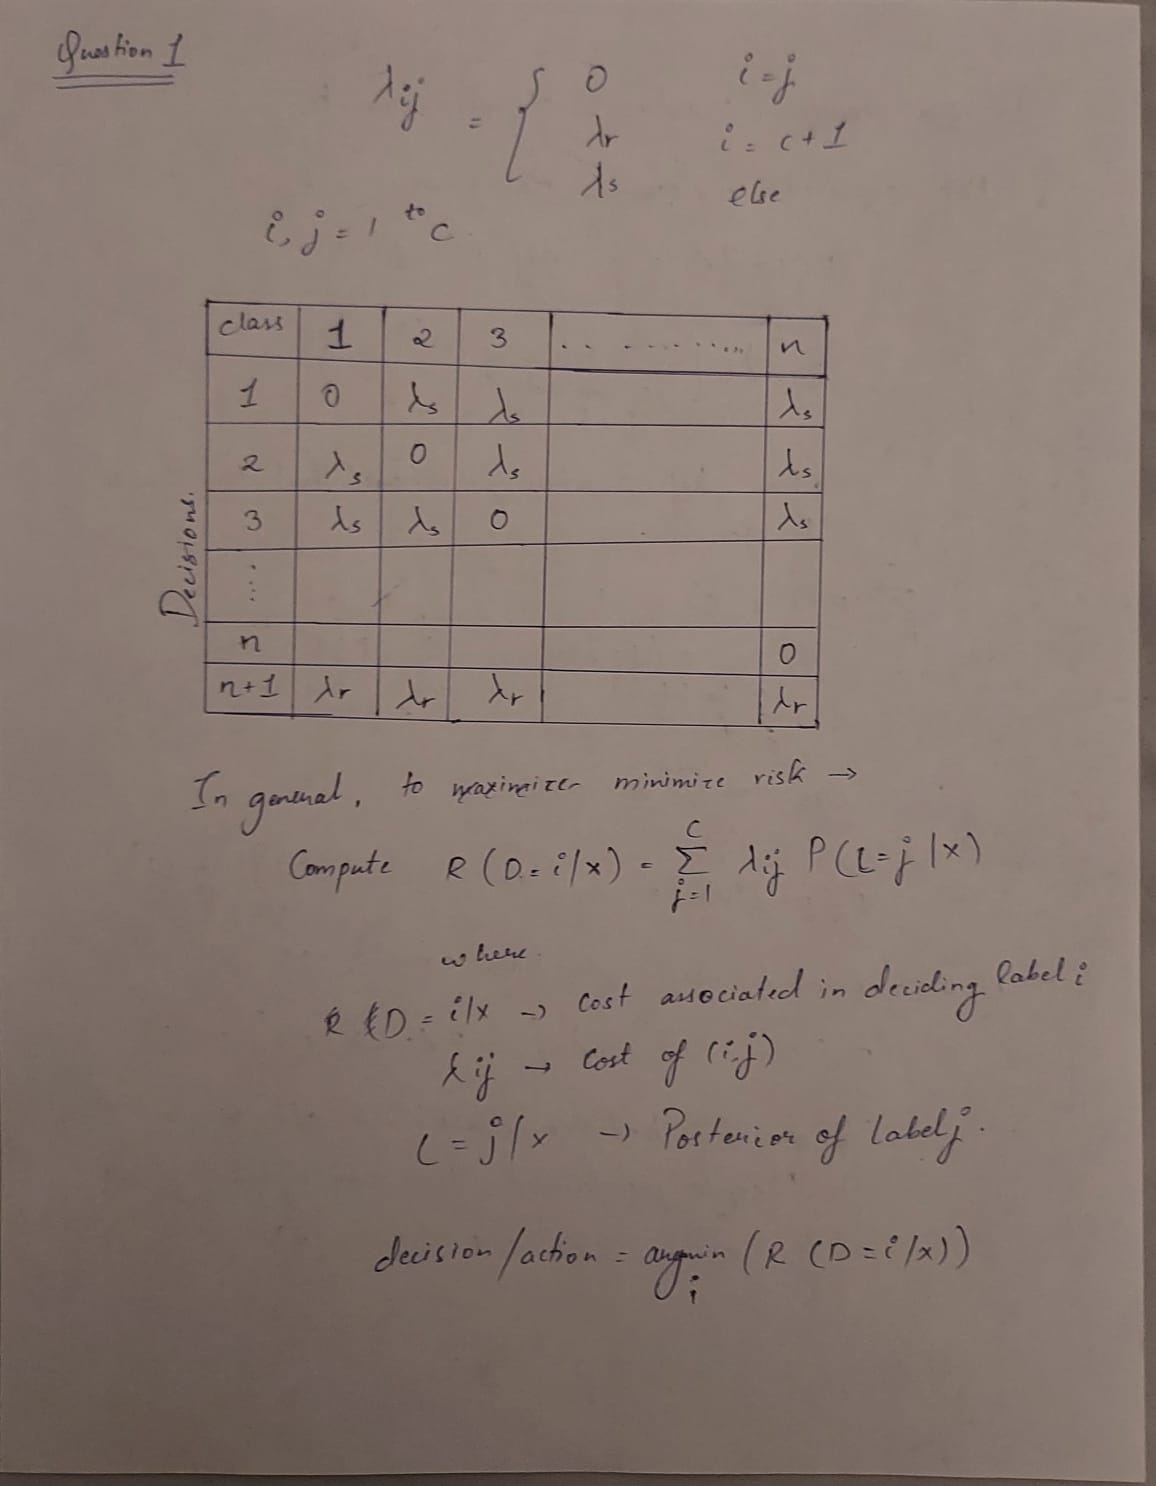 Question 1
λij = { 0 i=j
λr i = c+1
λs else
i, j = 1 to c
class 1 2 3 .. ......... n
1 0 λs λs λs
2 λs 0 λs λs
3 λs λs 0 λs
....
n 0
n+1 λr λr λr λr
Decisions.
In general, to minimize risk →
Compute R(D=i/x) = Σ j=1 C λij P(L=j|x)
where
R(D=i/x → Cost associated in deciding label i
λij → Cost of (i,j)
L=j/x → Posterior of Label j.
decision/action = argmin i (R(D=i/x))